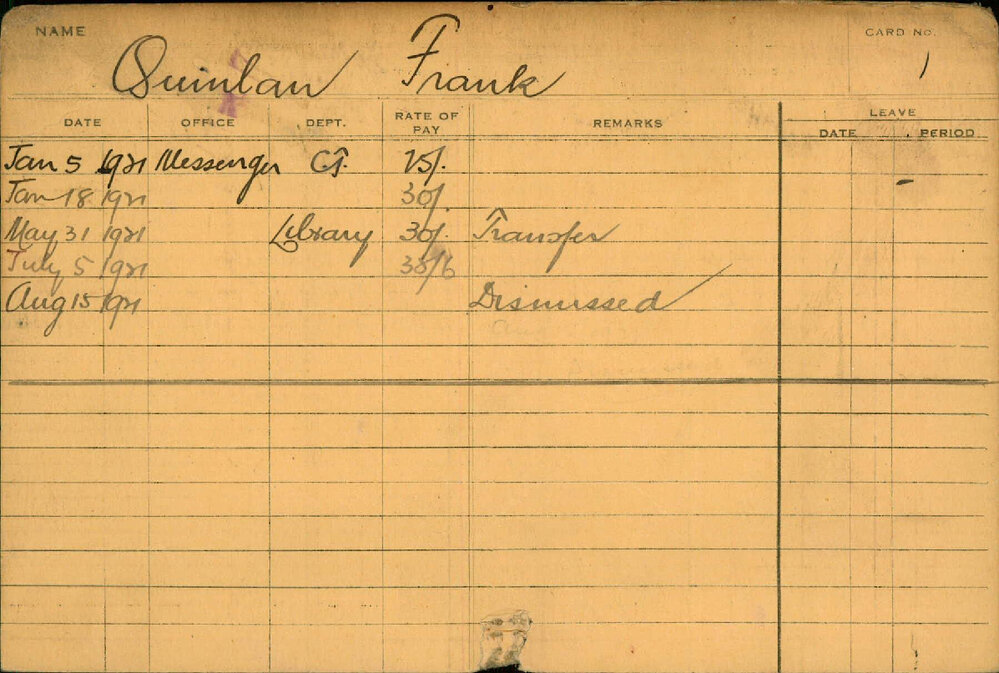 NAME Quinlan Frank CARD No. 1
DATE OFFICE DEPT. RATE OF PAY REMARKS LEAVE
DATE PERIOD
Jan 5 1921 Messenger 25/.
Jan 18 1921 30/.
May 31 1921 Library 30/. Transfer
July 5 1921
Aug 15 1921 Dismissed